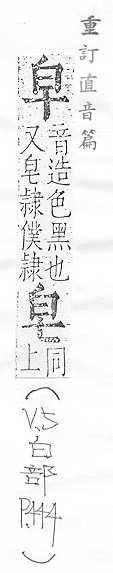 重訂直音篇
皁
音造色黑也
又皂隸僕隸
皂
同
上
(V.5 白部 P.444)